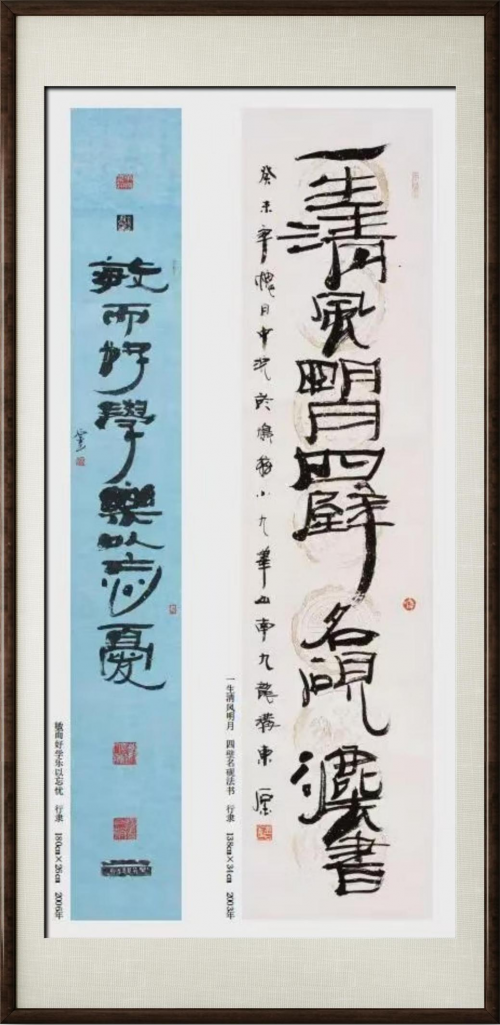 一生清风明月四壁名砚灋書
癸未年槐月中浣於
小九華山南九龍楼東
一生清风明月 四壁名砚法书 行隶 138cm×34cm 2003年
敏而好學樂以忘憂
敏而好学乐以忘忧 行隶 180cm×26cm 2006年